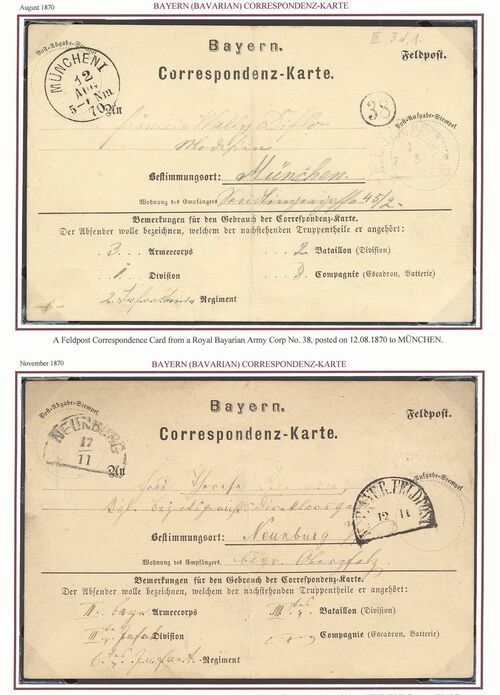 August 1870
BAYERN (BAVARIAN) CORRESPONDENZ-KARTE
Post-Abgabe-Stempel
MÜNCHEN I
12
AUG.
70
III 3 d. 1.
Bayern.
Feldpost.
Correspondenz-Karte.
38
An
Post-Ausgabe-Stempel
Bestimmungsort: München.
Wohnung des Empfängers 45/2
Bemerkungen für den Gebrauch der Correspondenz-Karte.
Der Absender wolle bezeichnen, welchem der nachstehenden Truppentheile er angehört:
3 Armeecorps 2 Bataillon (Division)
1 Division Compagnie (Escadron, Batterie)
2. Infanterie Regiment
A Feldpost Correspondence Card from a Royal Bayarian Army Corp No. 38, posted on 12.08.1870 to MÜNCHEN.
November 1870
BAYERN (BAVARIAN) CORRESPONDENZ-KARTE
Post-Abgabe-Stempel
NEUNBURG
17
11
Bayern.
Feldpost.
Correspondenz-Karte.
An
Ausgabe-Stempel
Frau Therese
BAYER. FELDPOST
12 11
Bestimmungsort: Neunburg
Wohnung des Empfängers. bayr. Oberpfalz
Bemerkungen für den Gebrauch der Correspondenz-Karte.
Der Absender wolle bezeichnen, welchem der nachstehenden Truppentheile er angehört:
II. bayr Armeecorps III. Bataillon (Division)
III. Division Compagnie (Escadron, Batterie)
6. Infant. Regiment